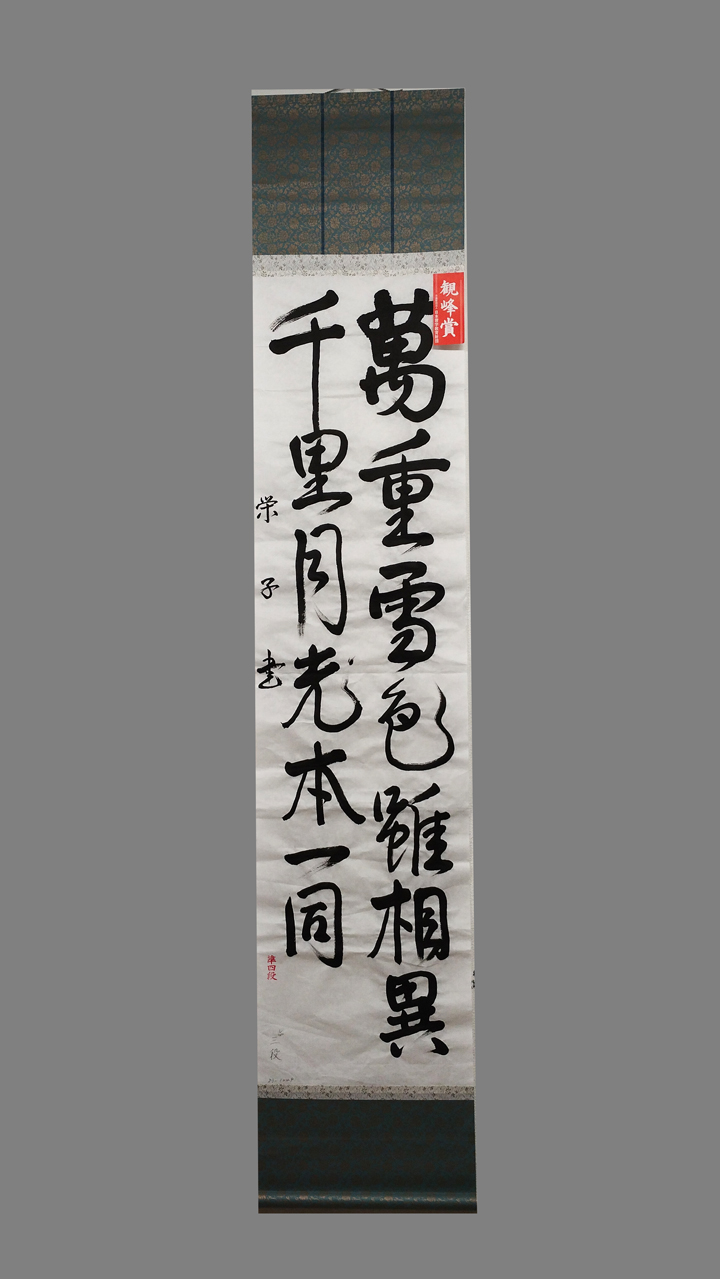 観峰賞
萬重雪色雖相異
千里月光本一同
栄子書
準四段
三段